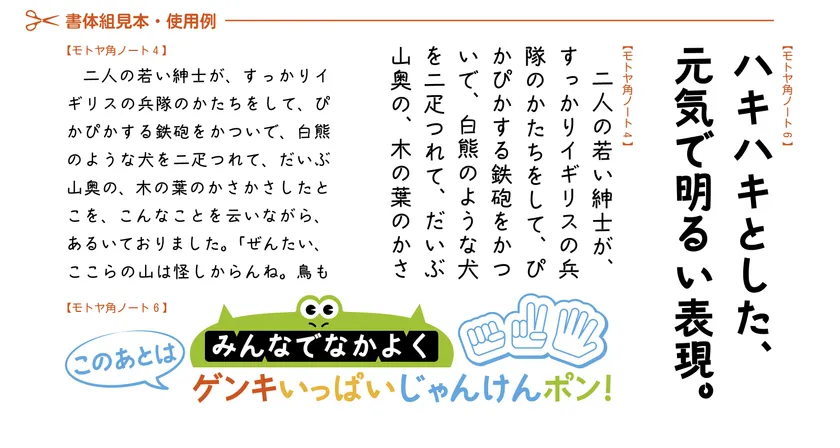 書体組見本・使用例
【モトヤ角ノート4】
二人の若い紳士が、すっかりイ
ギリスの兵隊のかたちをして、ぴ
かぴかする鉄砲をかついで、白熊
のような犬を二疋つれて、だいぶ
山奥の、木の葉のかさかさしたと
こを、こんなことを云いながら、
あるいておりました。「ぜんたい、
ここらの山は怪しからんね。鳥も
【モトヤ角ノート4】
二人の若い紳士が、
すっかりイギリスの兵
隊のかたちをして、ぴ
かぴかする鉄砲をかつ
いで、白熊のような犬
を二疋つれて、だいぶ
山奥の、木の葉のかさ
【モトヤ角ノート6】
ハキハキとした、
元気で明るい表現。
【モトヤ角ノート6】
このあとは
みんなでなかよく
ゲンキいっぱいじゃんけんポン!